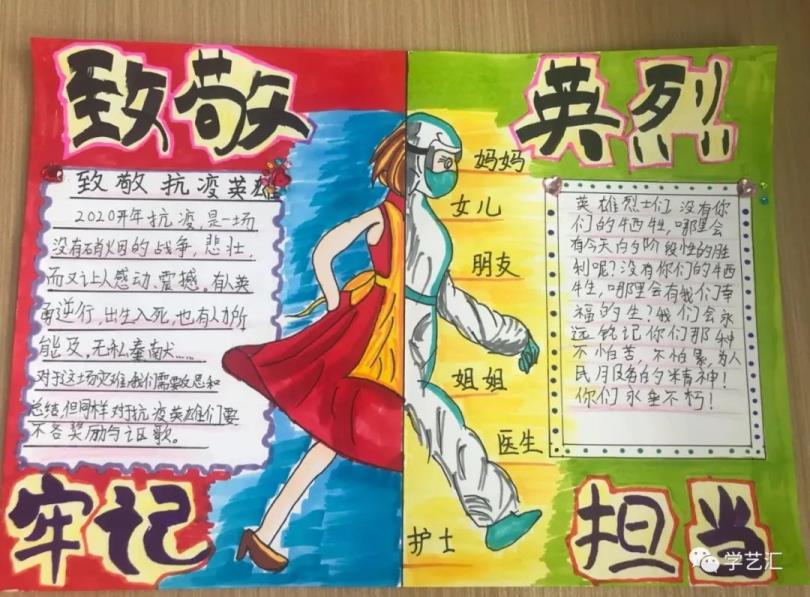 致敬
英烈
致敬抗疫英雄
2020开年抗疫,是一场
没有硝烟的战争,悲壮,
而又让人感动、震撼。有人英
勇逆行,出生入死,也有人力所
能及,无私奉献……
对于这场灾难,我们需要反思和
总结,但同样对抗疫英雄们要
不吝奖励与讴歌。
妈妈
女儿
朋友
姐姐
医生
护士
英雄烈士们,没有你
们的牺牲,哪里会
有今天的阶段性的胜
利呢?没有你们的牺
牲,哪里会有我们幸
福的生?我们会永
远铭记你们那种
不怕苦,不怕累,为人
民服务的精神!
你们永垂不朽!
牢记
担当
学艺汇